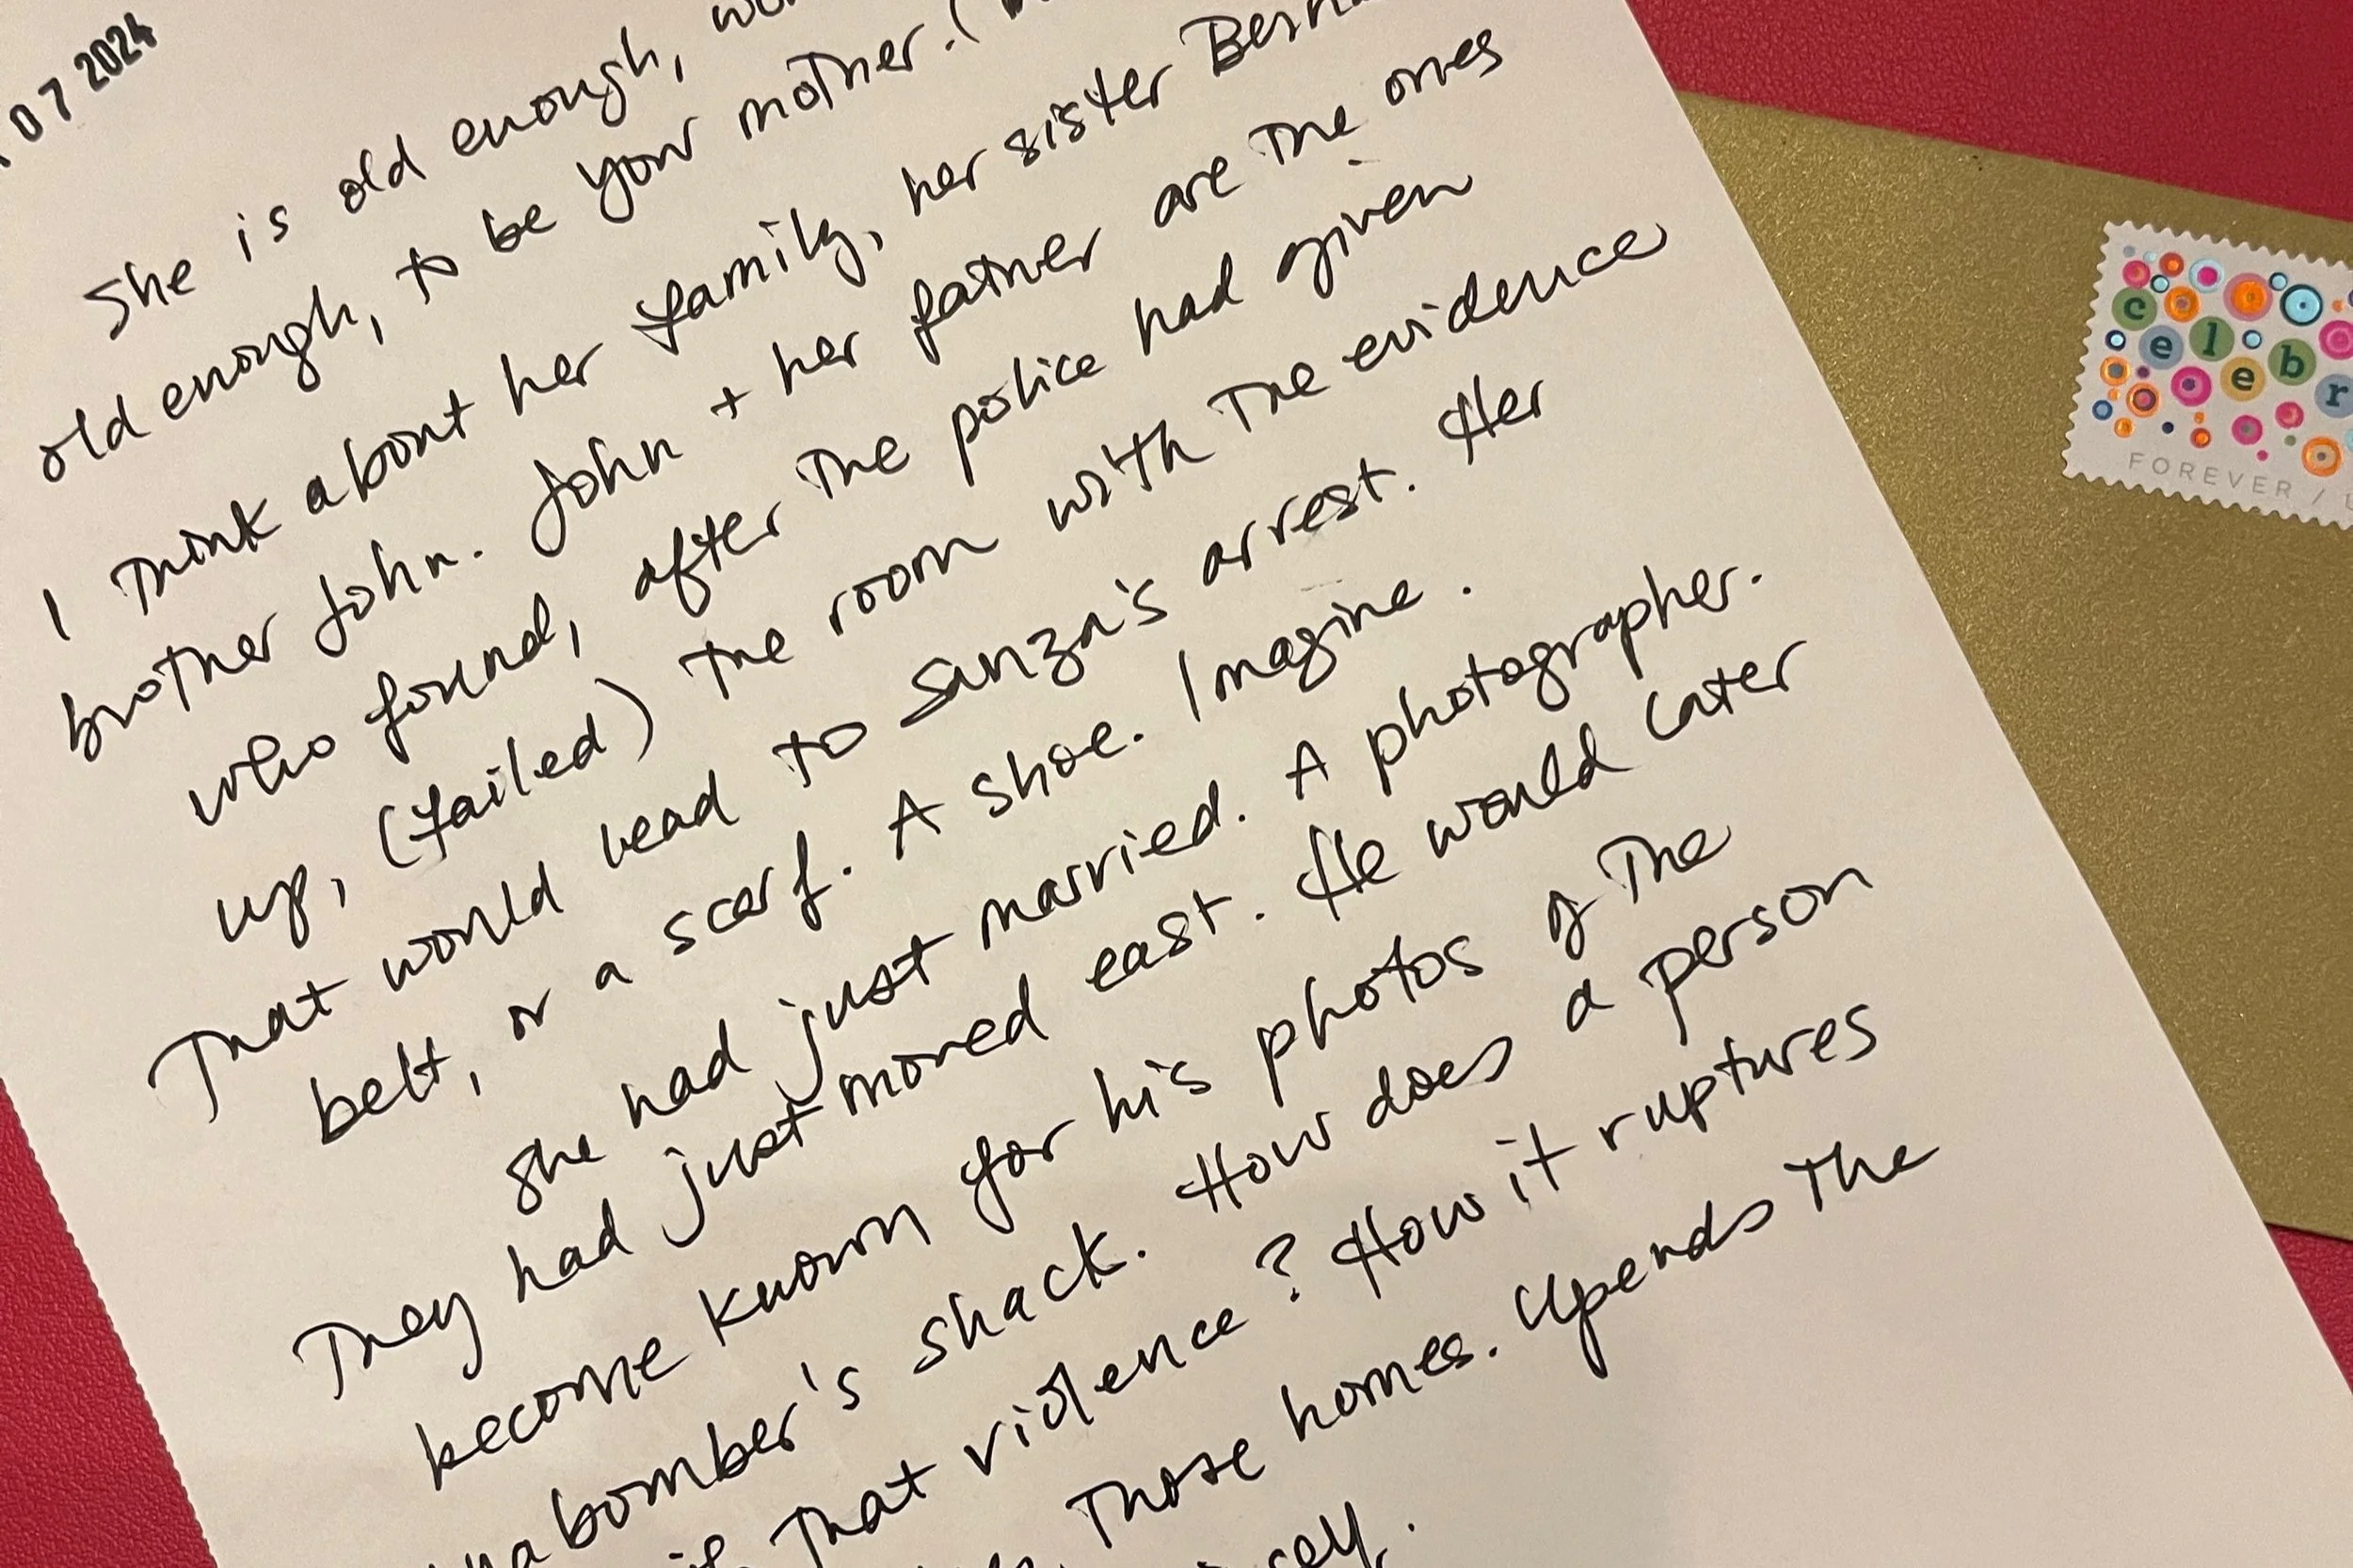 07 2024
She is old enough,
old enough, to be your mother. (
I think about her family, her sister
brother John. John + her father are the ones
who found, after the police had given
up, (failed) the room with the evidence
That would lead to Sanza's arrest. Her
belt, or a scarf. A shoe. Imagine.
She had just married. A photographer.
They had just moved east. He would later
become known for his photos of the
bomber's shack. How does a person
That violence? How it ruptures
Those homes. Upends the
celebr
FOREVER /